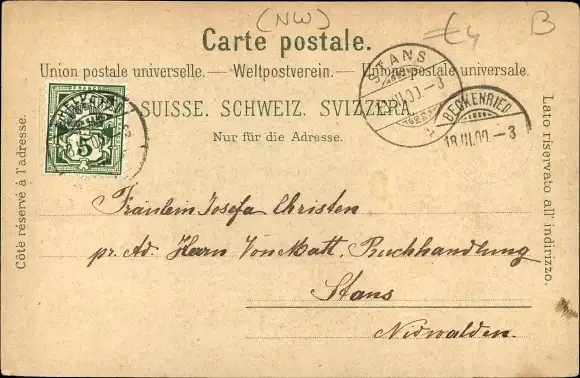 (NW)
€4
B
Carte postale.
Union postale universelle. — Weltpostverein. — Unione postale universale.
SUISSE. SCHWEIZ. SVIZZERA.
Nur für die Adresse.
Côté réservé à l'adresse.
Lato riservato all' indirizzo.
FRANCO
5
STANS
III.00.–3
BECKENRIED
18.III.00.–3
Fräulein Josefa Christen
pr. Ad. Herrn Von Matt, Buchhandlung
Stans
Nidwalden.